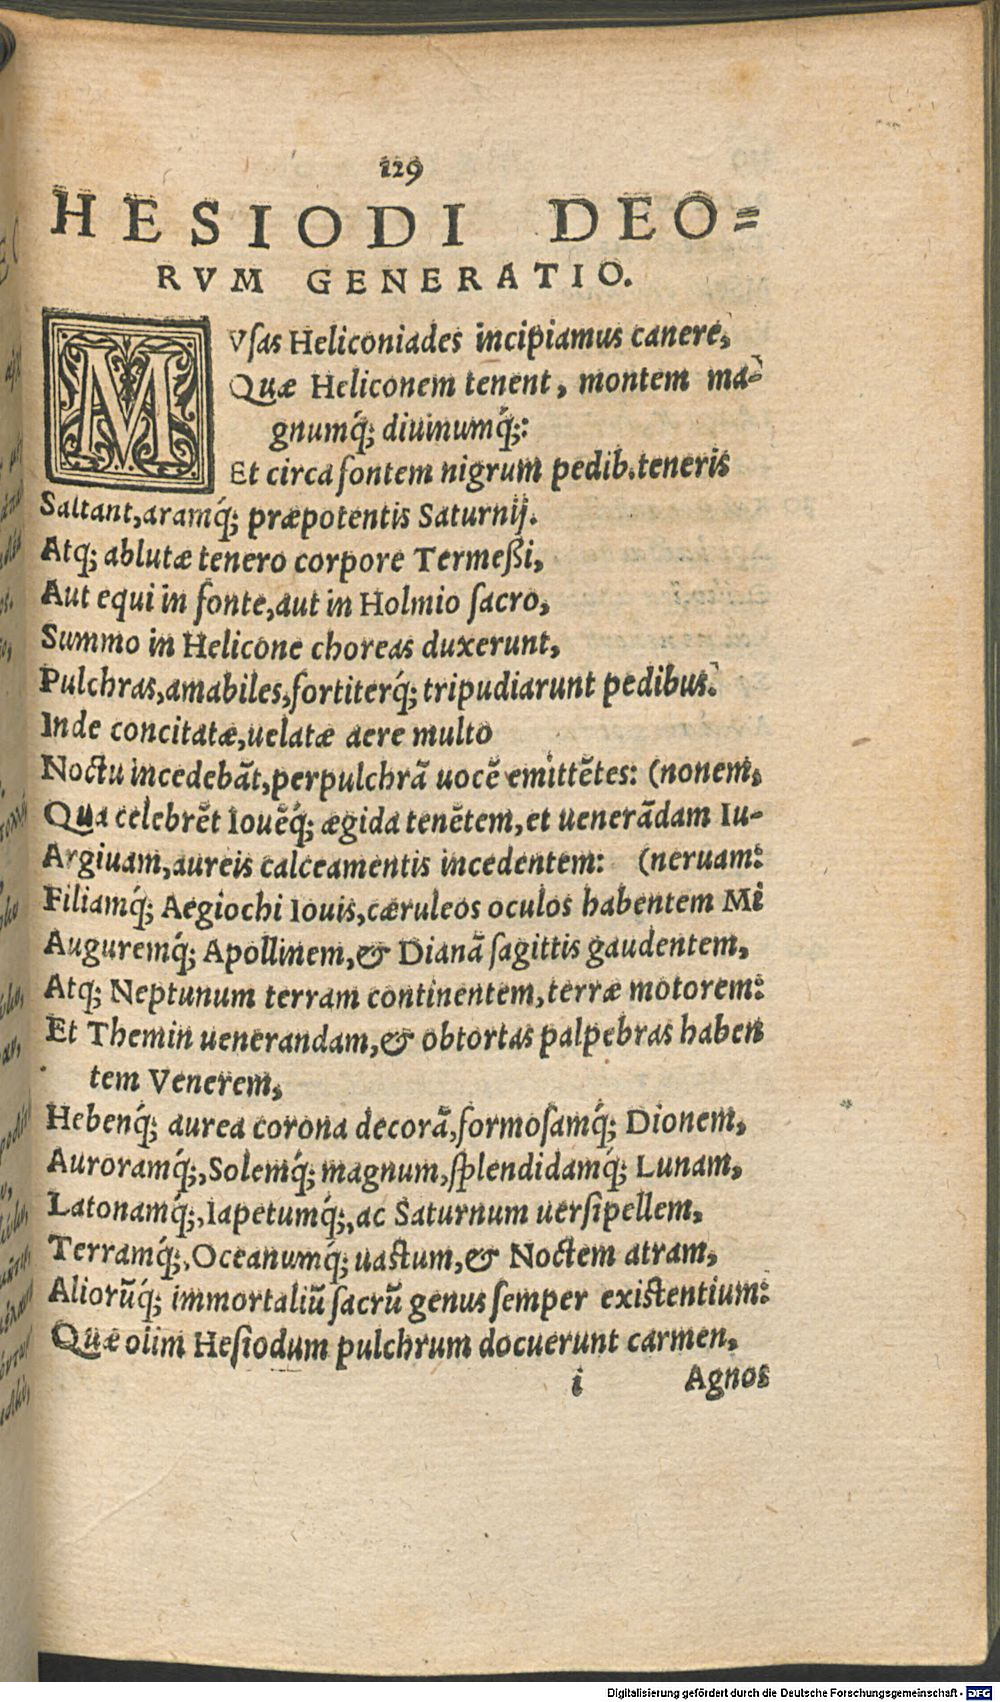 129
HESIODI DEO=
RVM GENERATIO.
MVſas Heliconiades incipiamus canere,
Quæ Heliconem tenent, montem ma-
gnumq́; diuinumq́;:
Et circa fontem nigrum pedib. teneris
Saltant, aramq́; præpotentis Saturnij.
Atq; ablutæ tenero corpore Termeßi,
Aut equi in fonte, aut in Holmio ſacro,
Summo in Helicone choreas duxerunt,
Pulchras, amabiles, fortiterq́; tripudiarunt pedibus.
Inde concitatæ, uelatæ aere multo
Noctu incedebãt, perpulchrã uocẽ emittẽtes: (nonem,
Qua celebrẽt Iouẽq́; ægida tenẽtem, et uenerãdam Iu-
Argiuam, aureis calceamentis incedentem: (neruam:
Filiamq́; Aegiochi Iouis, cæruleos oculos habentem Mi
Auguremq́; Apollinem, & Dianã ſagittis gaudentem,
Atq; Neptunum terram continentem, terræ motorem:
Et Themin uenerandam, & obtortas palpebras haben
tem Venerem,
Hebenq́; aurea corona decorã, formoſamq́; Dionem,
Auroramq́;, Solemq́; magnum, ſplendidamq́; Lunam,
Latonamq́;, Iapetumq́;, ac Saturnum uerſipellem,
Terramq́;, Oceanumq́; uaſtum, & Noctem atram,
Aliorũq́; immortaliũ ſacrũ genus ſemper exiſtentium:
Quæ olim Heſiodum pulchrum docuerunt carmen,
i Agnos
Digitalisierung gefördert durch die Deutsche Forschungsgemeinschaft - DFG